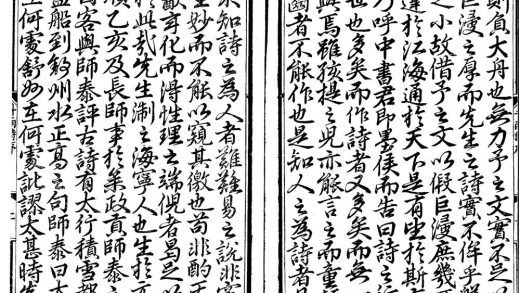 則負大舟也無力予之文實不足
巨浸之厚而先生之詩實不侔乎
之小故借予之文以假巨浸庶幾
達於江海通於天下是有坐於斯
乃呼中書君即墨侯而告曰詩之
世也多矣而作詩者又多矣而無
此焉雖孩提之皃亦能言之而重
者不能作也是知人之為詩者
未知詩之為人者誰難易之說非
生妙而不能以窺其徼也苟非酌
化而得性理之端倪者曷足以
於此哉先生淛之海寧人也生於
順乙亥及長師事於參政貢師泰
客與師泰評古詩有大行積雪
船到鈞州水正高之句師泰曰
在何處舒妙在何處訛謬太甚時